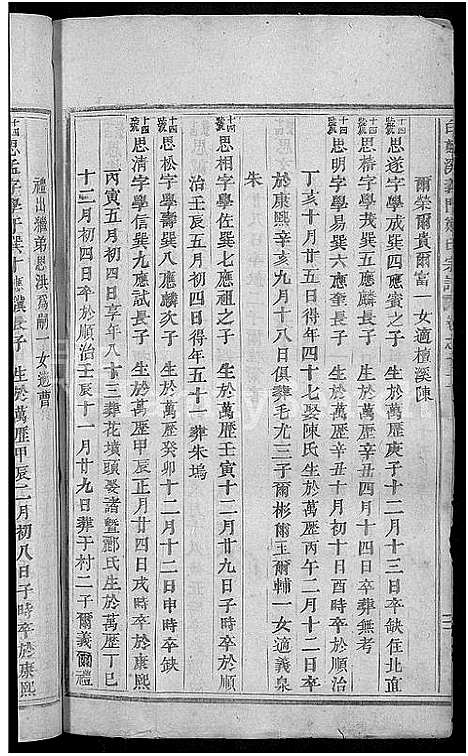 爾榮爾貴爾富一女適檀溪陳
十四號 思遂字學巽四應賓之子 生於萬歷庚子十二月十三日卒缺住北直
十四號 思椿字學巽六應賢長子 生於萬歷 卒葬無考
十四號 思明字學易巽六應 子 生於萬歷辛丑十月初十日酉時卒於順治
丁亥十月廿五日得年四十七娶陳氏生於萬歷丙午二月十二日卒
於康熙辛亥九月十八日俱葬毛尤三子爾彬爾玉爾輔一女適義泉
朱
十四號 思相字學佐巽七應祖之子 生於萬歷壬寅十二月廿九日子時卒於順
治壬辰五月初四日得年五十一葬朱塢
十四號 思松字學壽巽九應麟次子 生於萬歷癸卯十二月十二日申時卒缺
十四號 思清字學九應試長子 生於萬歷甲辰正月廿四日戌時卒於康熙
丙寅五月初四日享年八十三葬花墳頭娶諸暨酈氏生於萬歷丁巳
十二月初四日卒於順治壬辰十一月廿九日葬于村二子爾義爾禮
禮出繼弟思洪為嗣一女適曹
十四 思孟字學于巽十應 長子 生於萬歷甲辰二月初八日子時卒於康熙